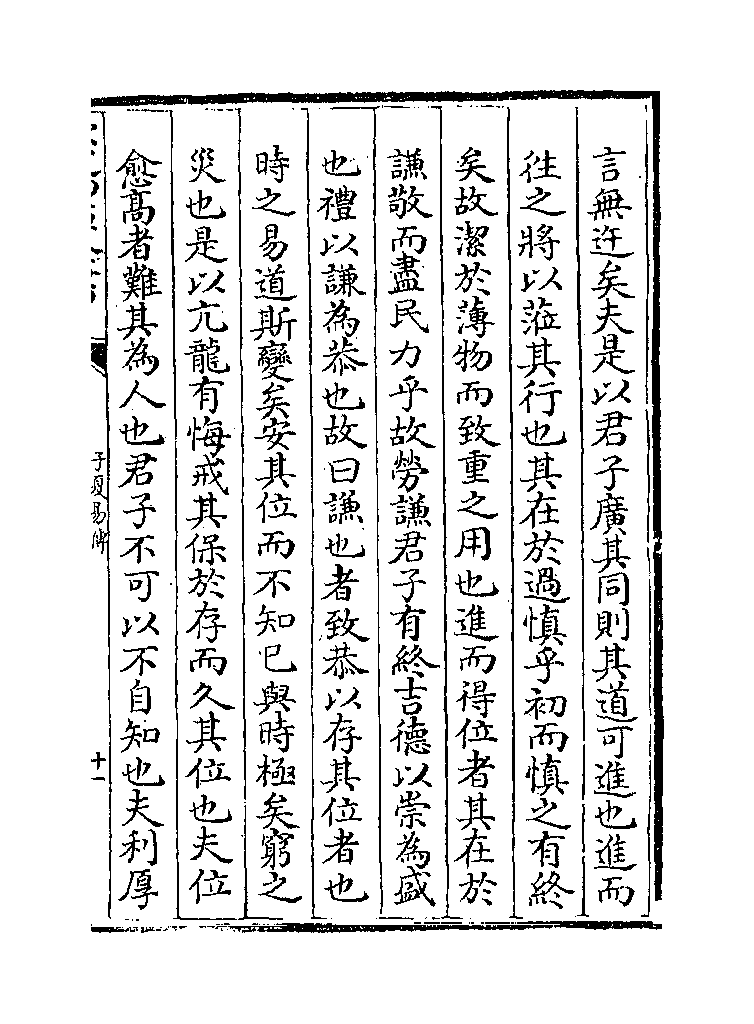 言無迕矣夫是以君子廣其同則其道可進也進而
徃之將以蒞其行也其在於過慎乎初而慎之有終
矣故潔於薄物而致重之用也進而得位者其在於
謙敬而盡民力乎故勞謙君子有終吉德以崇為盛
也禮以謙為恭也故曰謙也者致恭以存其位者也
時之易道斯變矣安其位而不知已與時極矣窮之
災也是以亢龍有悔戒其保於存而久其位也夫位
愈髙者難其為人也君子不可以不自知也夫利厚
子夏易傳
十一